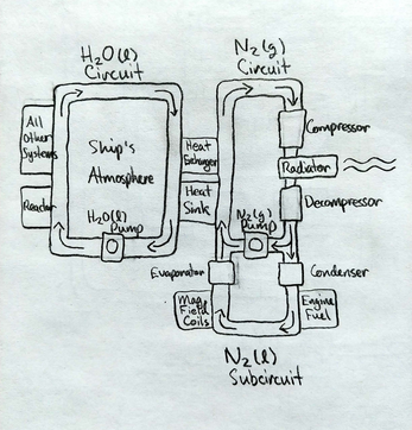 H₂O(l)
Circuit
N₂(g)
Circuit
All
Other
Systems
Ship's
Atmosphere
Heat
Exchanger
Compressor
Radiator
Reactor
Heat
Sink
Decompressor
H₂O(l)
Pump
N₂(g)
Pump
Evaporator
Condenser
Mag.
Field
Coils
Engine
Fuel
N₂(l)
Subcircuit